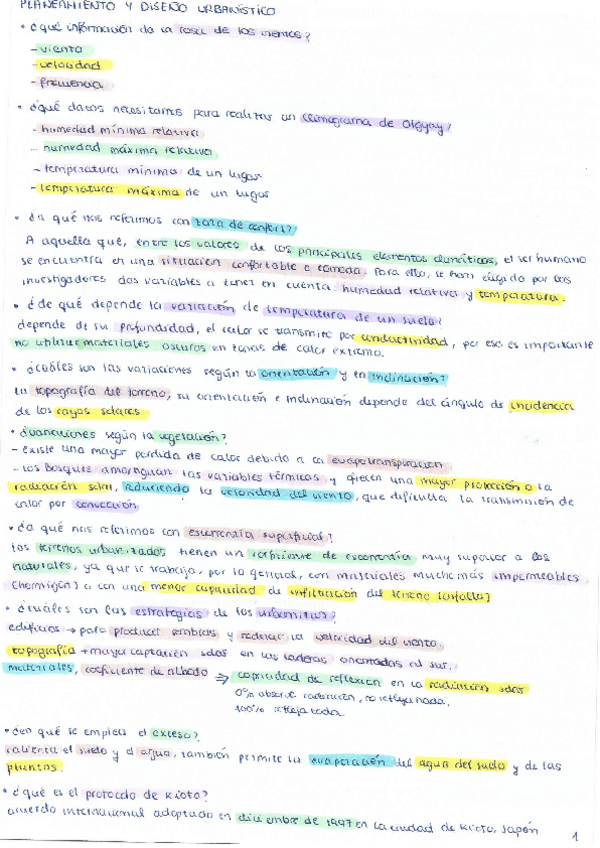 PLANEAMIENTO Y DISEÑO URBANÍSTICO
• ¿qué información da la rosa de los vientos?
- viento
- velocidad
- frecuencia
• ¿qué datos necesitamos para realizar un climograma de Olgyay?
- humedad mínima relativa
- humedad máxima relativa
- temperatura mínima de un lugar
- temperatura máxima de un lugar
• ¿a qué nos referimos con zona de confort?
A aquella que, entre los valores de los principales elementos climáticos, el ser humano
se encuentra en una situación confortable o cómoda. Para ello, se han elegido por los
investigadores dos variables a tener en cuenta: humedad relativa y temperatura.
• ¿de qué depende la variación de temperatura de un suelo?
depende de su profundidad, el calor se transmite por conductividad, por eso es importante
no utilizar materiales oscuros en zonas de calor extremo.
• ¿cuáles son las variaciones según la orientación y en inclinación?
la topografía del terreno, su orientación e inclinación depende del ángulo de incidencia
de los rayos solares
• ¿variaciones según la vegetación?
- existe una mayor perdida de calor debido a la evapotranspiración
- los bosques amortiguan las variables térmicas y ofrecen una mayor protección a la
radiación solar, reduciendo la velocidad del viento, que dificulta la transmisión de
calor por convección
• ¿a qué nos referimos con escorrentía superficial?
los terrenos urbanizados tienen un coeficiente de escorrentía muy superior a los
naturales, ya que se trabaja, por lo general, con materiales mucho más impermeables
(hormigón) o con una menor capacidad de infiltración del terreno (asfalto)
• ¿cuáles son las estrategias de los urbanistas?
edificios → para producir sombras y reducir la velocidad del viento
topografía → mayor captación solar en las laderas orientadas al sur.
materiales, coeficiente de albedo ⇒ capacidad de reflexión en la radiación solar
0% absorve radiación, no refleja nada.
100% refleja toda.
• ¿en qué se emplea el exceso?
calienta el suelo y el agua, también permite la evaporación del agua del suelo y de las
plantas.
• ¿qué es el protocolo de Kioto?
acuerdo internacional adoptado en diciembre de 1997 en la ciudad de Kioto, Japón
1